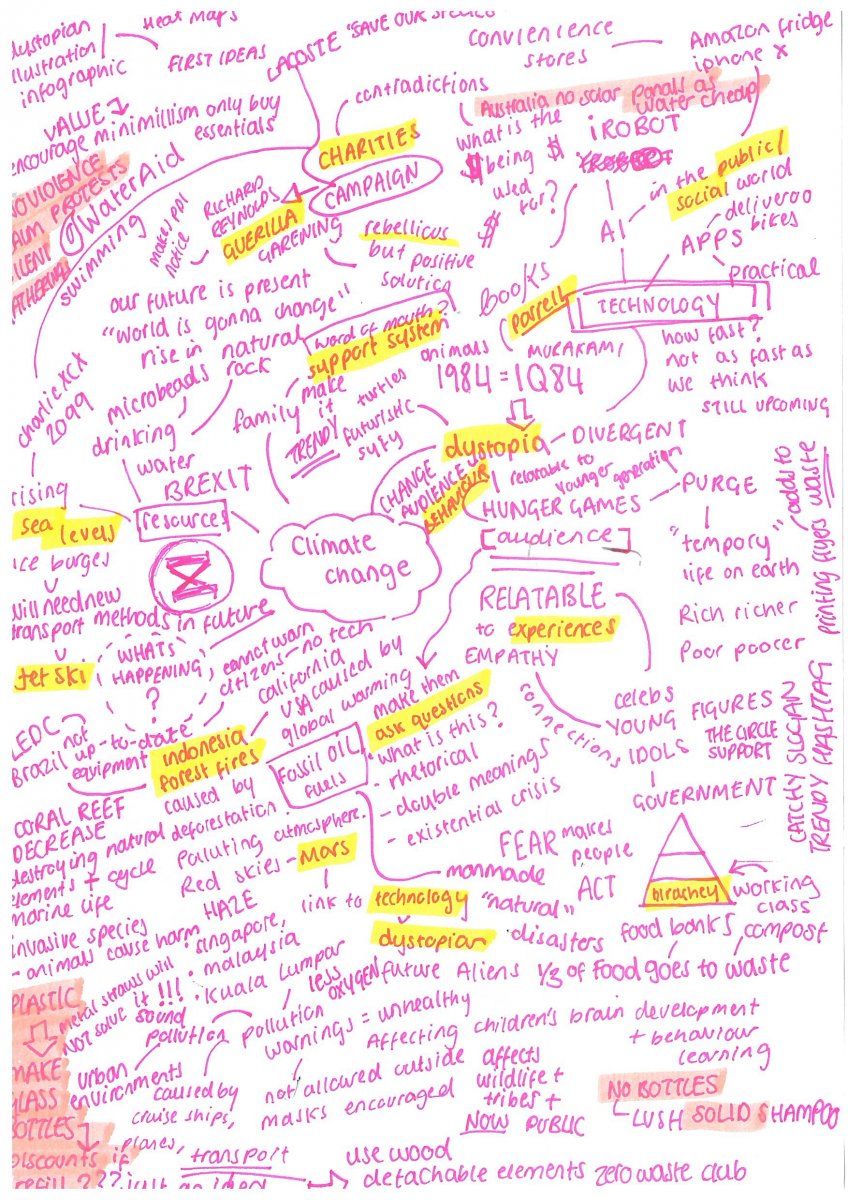 dystopian
illustration
infographic
Heat maps
FIRST IDEAS
LACOSTE "SAVE OUR SPECIES
convenience
stores
Amazon fridge
iphone x
contradictions
VALUE
encourage minimillism only buy
essentials
CHARITIES
CAMPAIGN
Australia no solar panals as
water cheap
what is the
$ being $
used
for?
$
iROBOT
AI
in the public/
social world
APPS
deliveroo
bikes
practical
TECHNOLOGY
how fast?
not as fast as
we think
STILL UPCOMING
NOVIOLENCE
CALM PROTESTS
SILENT
GATHERINGS
WaterAid
swimming
make ppl
notice
RICHARD
REYNOLDS
GUERILLA
GARENING
rebellious
but positive
solution
our future is present
"world is gonna change"
rise in natural
rock
microbeads
drinking
water
charlie XCX
2099
word of mouth?
support system
family
make
it
TRENDY
animals
turtles
futuristic
syfy
books
parrell
MURAKAMI
1984 = 1Q84
dystopia
DIVERGENT
relatable to
younger generation
HUNGER GAMES
PURGE
"tempory"
life on earth
Rich richer
Poor poorer
adds to
printing flyers waste
CHANGE
AUDIENCES
BEHAVIOUR
[audience]
BREXIT
resources
Climate
change
rising
sea levels
ice burges
will need new
transport methods in future
Jet Ski
WHATS
HAPPENING
?
cannot warn
citizens - no tech
LEDC
Brazil
not
up-to-date
equipment
Indonesia
forest fires
california
USA caused by
global warming
caused by
deforestation
Fossil OIL
fuels
RELATABLE
to experiences
EMPATHY
connections
make them
ask questions
- what is this?
- rhetorical
- double meanings
- existential crisis
celebs
YOUNG
IDOLS
FIGURES
THE CIRCLE
SUPPORT
GOVERNMENT
CATCHY SLOGAN
TRENDY HASHTAG
hirachey
working
class
FEAR makes
people
ACT
manmade
"natural"
disasters
CORAL REEF
DECREASE
destroying natural
elements + cycle
marine life
invasive species
- animals cause harm
Polluting atmosphere
Red skies - Mars
link to technology
dystopian
future Aliens
HAZE
· singapore,
· malaysia
· Kuala Lumpar
food banks
compost
1/3 of food goes to waste
metal straws will
NOT solve it!!!
PLASTIC
MAKE
GLASS
BOTTLES
discounts if
refill ??? just an idea
sound
pollution
urban
environments
pollution
less
OXYGEN
warnings = unhealthy
not allowed outside
masks encouraged
caused by
cruise ships,
planes,
transport
Affecting children's brain development
+ behaviour
learning
affects
wildlife +
tribes +
NOW PUBLIC
NO BOTTLES
LUSH SOLID SHAMPOO
use wood
detachable elements zero waste club